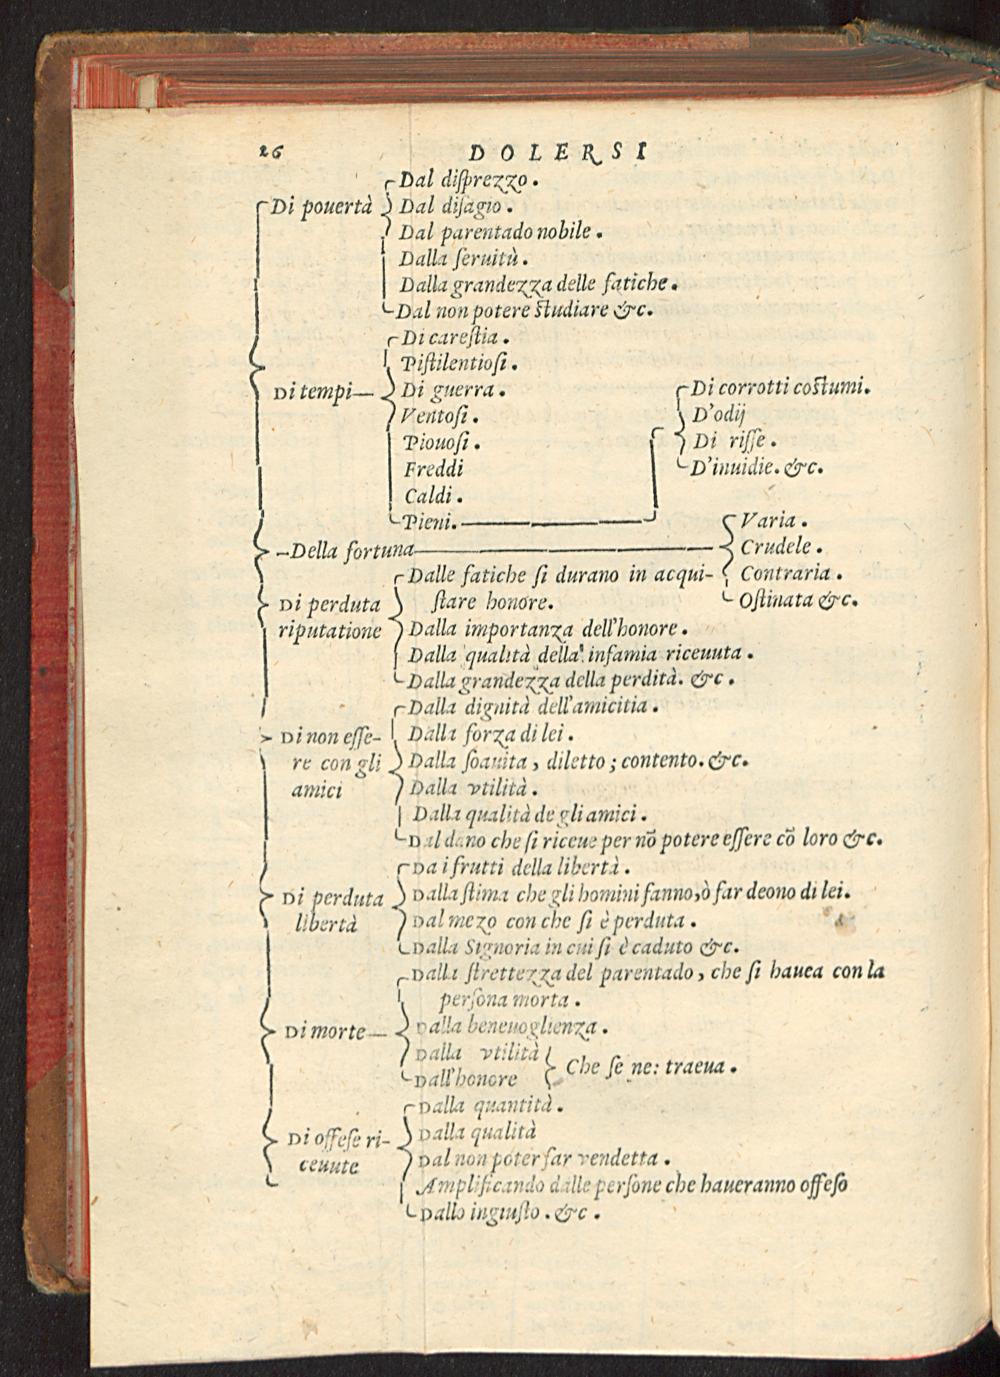 26 DOLERSI
Di pouertà
Dal disprezzo.
Dal disagio.
Dal parentado nobile.
Dalla seruitù.
Dalla grandezza delle fatiche.
Dal non potere studiare &c.
Di tempi
Di carestia.
Pistilentiosi.
Di guerra.
Ventosi.
Piouosi.
Freddi
Caldi.
Pieni.
Di corrotti costumi.
D'odij
Di risse.
D'inuidie. &c.
Della fortuna
Varia.
Crudele.
Contraria.
Ostinata &c.
Di perduta
riputatione
Dalle fatiche si durano in acqui-
stare honore.
Dalla importanza dell'honore.
Dalla qualità della infamia riceuuta.
Dalla grandezza della perdità. &c.
Di non esse-
re con gli
amici
Dalla dignità dell'amicitia.
Dalla forza di lei.
Dalla soauita, diletto; contento. &c.
Dalla vtilità.
Dalla qualità de gli amici.
Dal dano che si riceue per nõ potere essere cõ loro &c.
Di perduta
libertà
Da i frutti della libertà.
Dalla stima che gli homini fanno, ò far deono di lei.
Dal mezo con che si è perduta.
Dalla Signoria in cui si è caduto &c.
Di morte
Dalla strettezza del parentado, che si hauea con la
persona morta.
Dalla beneuoglienza.
Dalla vtilità
Dall'honore
Che se ne: traeua.
Di offese ri-
ceuute
Dalla quantità.
Dalla qualità
Dal non poter far vendetta.
Amplificando dalle persone che haueranno offeso
Dallo ingiusto. &c.